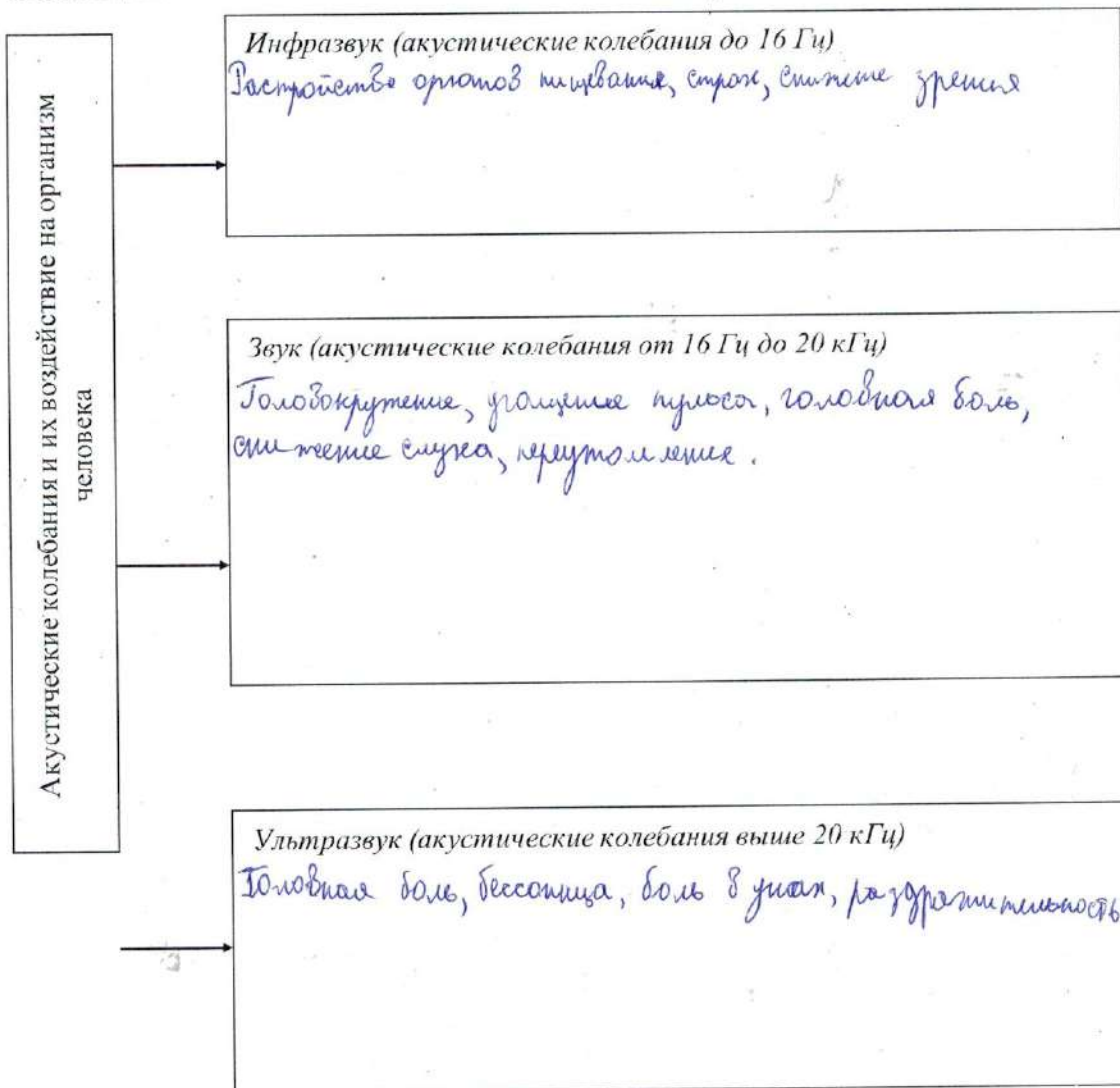 Акустические колебания и их воздействие на организм
человека
Инфразвук (акустические колебания до 16 Гц)
Растройство органов пищевания, страх, снижение зрения
Звук (акустические колебания от 16 Гц до 20 кГц)
Головокружение, учащение пульса, головная боль,
снижение слуха, переутомление.
Ультразвук (акустические колебания выше 20 кГц)
Головная боль, бессонница, боль в ушах, раздражительность